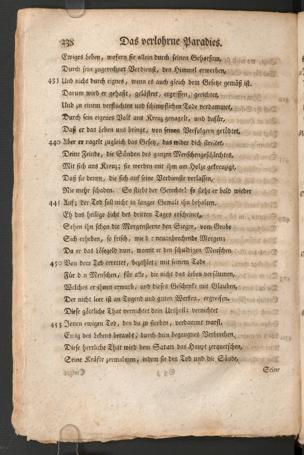 238 Das verlohrne Paradies.
Ewiges Leben, wofern sie allein durch seinen Gehorsam,
Durch sein zugerechnet Verdienst, den Himmel erwerben,
435 Und nicht durch eignes, wenn es auch gleich dem Gesetze gemäß ist.
Darum wird er gehaßt, gelästert, ergriffen, gerichtet
Und zu einem verfluchten und schimpflichen Tode verdammet,
Durch sein eigenes Volk ans Kreuz genagelt, und dafür,
Daß er das Leben uns bringt, von seinen Verfolgern getödtet.
440 Aber er nagelt zugleich das Gesetz, das wider dich streitet,
Deine Feinde, die Sünden des ganzen Menschengeschlechtes,
Mit sich ans Kreuz; sie werden mit ihm am Holze gekreuzigt,
Daß sie denen, die sich auf seine Verdienste verlassen,
Nie mehr schaden. So stirbt der Gerechte! so steht er bald wieder
445 Auf; der Tod soll nicht in langer Gewalt ihn behalten.
Eh das heilige Licht des dritten Tages erscheinet,
Sehen ihn schon die Morgensterne den Sieger, vom Grabe
Sich erheben, so frisch, wie der neuanbrechende Morgen;
Da er das Lösegeld nun, womit er den schuldigen Menschen
450 Von dem Tod errettet, bezahlet; mit seinem Tode
Für den Menschen, für alle, die nicht das Leben versäumen,
Welches er ihnen erwarb, und dieses Geschenke mit Glauben,
Der nicht leer ist an Tugend und guten Werken, ergreifen.
Diese göttliche That vernichtet dein Urtheil; vernichtet
455 Jenen ewigen Tod, den du zu sterben, verdammt warst,
Ewig des Lebens beraubt, durch dein begangnes Verbrechen.
Diese herrliche That wird dem Satan das Haupt zerquetschen,
Seine Kräfte zermalmen, indem sie den Tod und die Sünde,
Seine